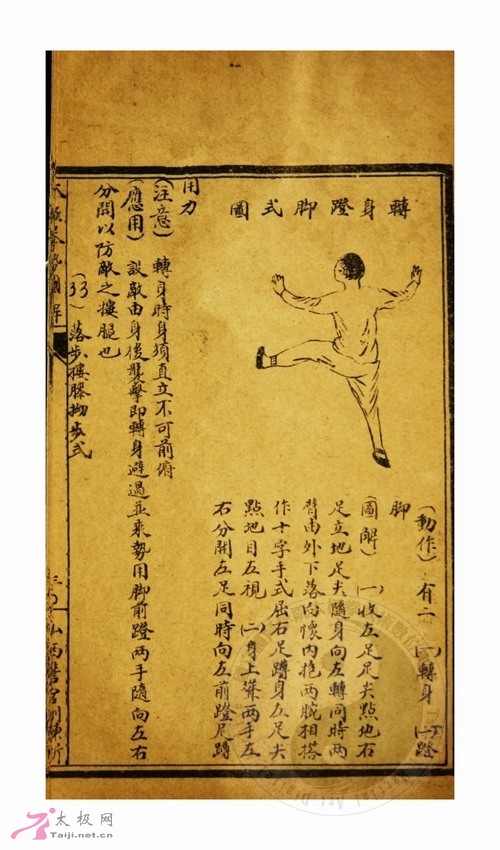 轉身蹬脚式圖
(動作)有二 (一)轉身 (二)蹬
脚
(圖解) (一)收左足足尖點地右
足立地足尖隨身向左轉同時兩
臂由外下落向懷内抱兩腕相搭
作十字手式屈右足蹲身左足尖
點地目左視 (二)身上聳兩手左
右分開左足同時向左前蹬足蹲
用力
(注意) 轉身時身須直立不可前俯
(應用) 設敵由身後襲擊即轉身避過並乘勢用脚前蹬两手隨向左右
分開以防敵之摟腿也
(33) 落步摟膝拗步式
太極拳勢圖解
山西警官訓練所
太极网
Taiji.net.cn